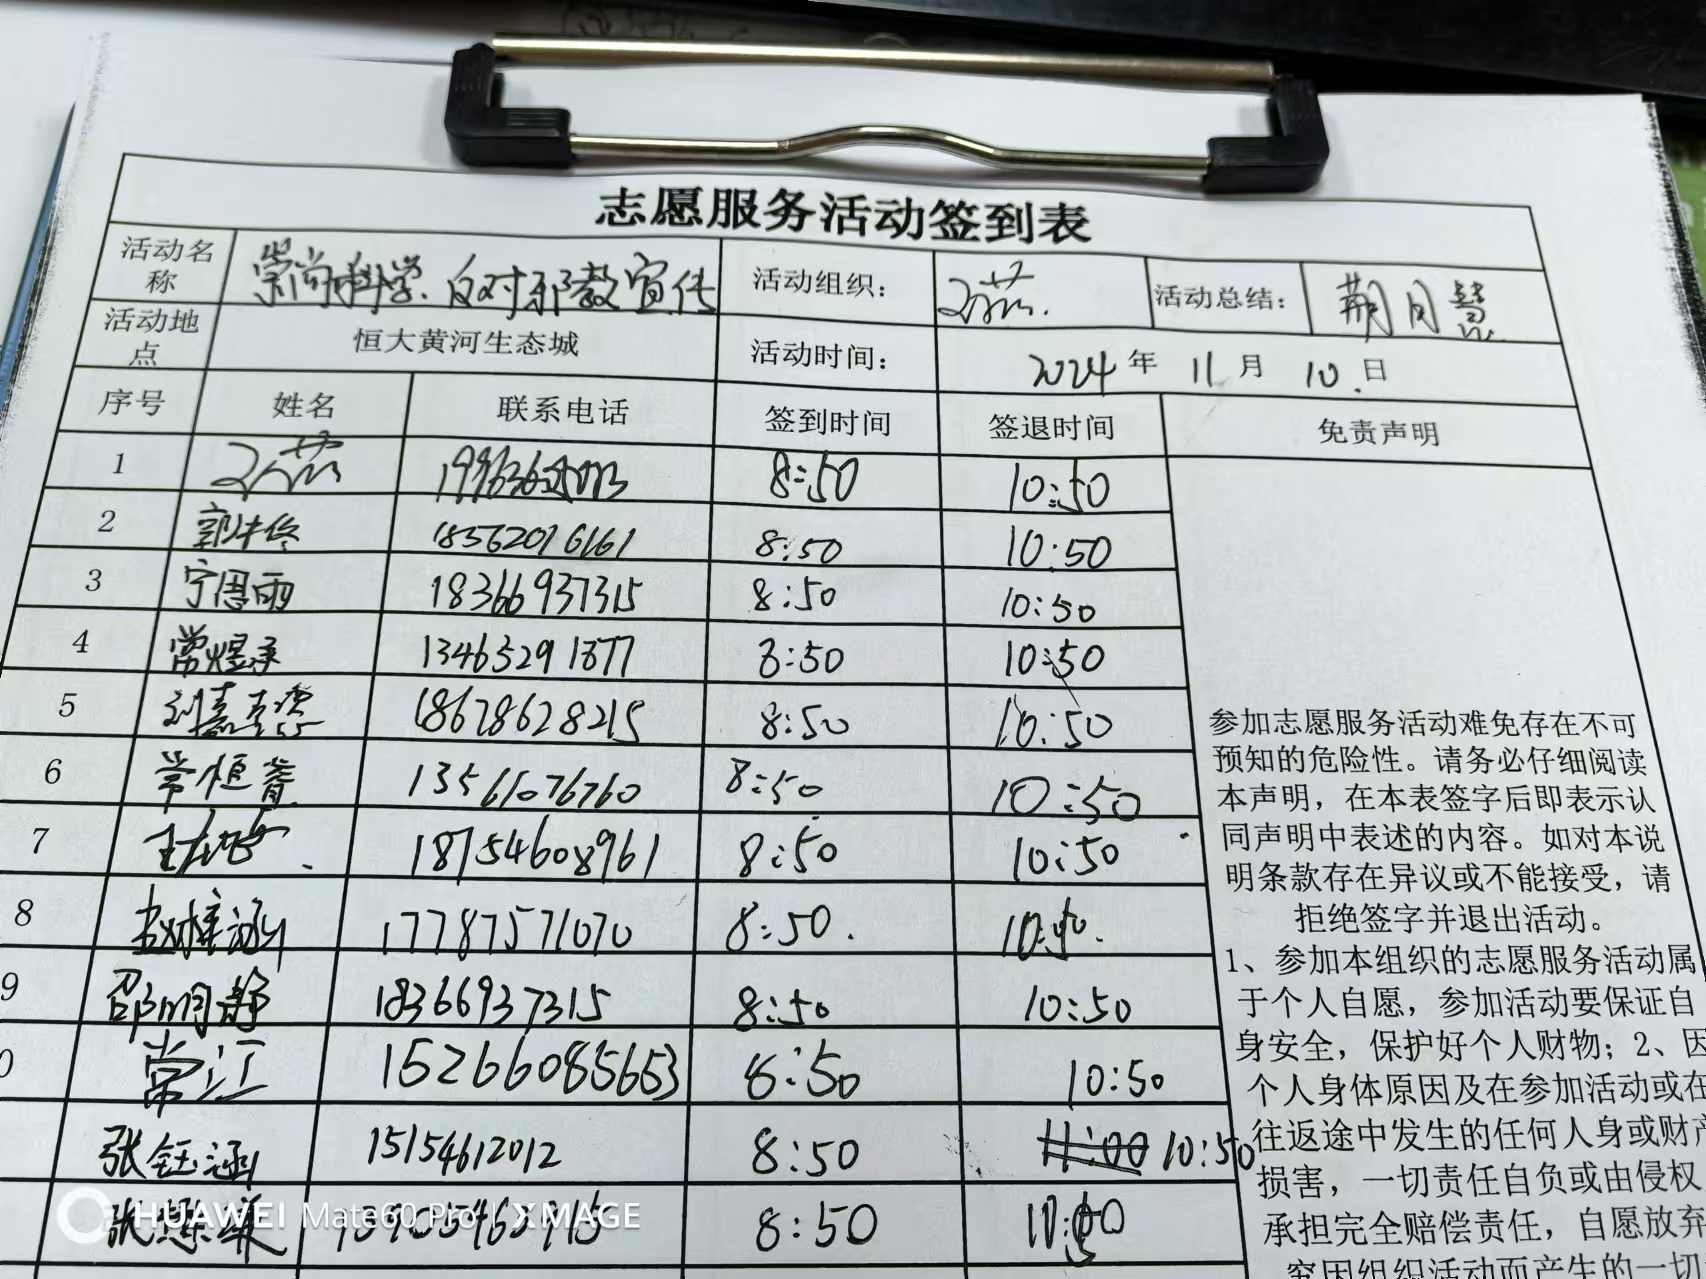 志愿服务活动签到表
活动名称 崇尚科学、反对邪教宣传 活动组织： 活动总结： 荆月慧
活动地点 恒大黄河生态城 活动时间： 2024年 11月 10日
序号 姓名 联系电话 签到时间 签退时间 免责声明
1 8:50 10:50
2 18562016161 8:50 10:50
3 宁恩雨 18366937315 8:50 10:50
4 常煜承 13465291877 8:50 10:50
5 刘嘉 18678628215 8:50 10:50
6 常恒睿 13561076760 8:50 10:50
7 18754608961 8:50 10:50
8 赵梓涵 17787571070 8:50. 10:50.
9 邵明静 18366937315 8:50 10:50
0 常江 15266085653 8:50 10:50
张钰涵 15154612012 8:50 11:00 10:50
张 8:50 10:50
参加志愿服务活动难免存在不可
预知的危险性。请务必仔细阅读
本声明，在本表签字后即表示认
同声明中表述的内容。如对本说
明条款存在异议或不能接受，请
拒绝签字并退出活动。
1、参加本组织的志愿服务活动属
于个人自愿，参加活动要保证自
身安全，保护好个人财物；2、因
个人身体原因及在参加活动或在
往返途中发生的任何人身或财产
损害，一切责任自负或由侵权
承担完全赔偿责任，自愿放弃
究因组织活动而产生的一切
HUAWEI Mate60 Pro | XMAGE